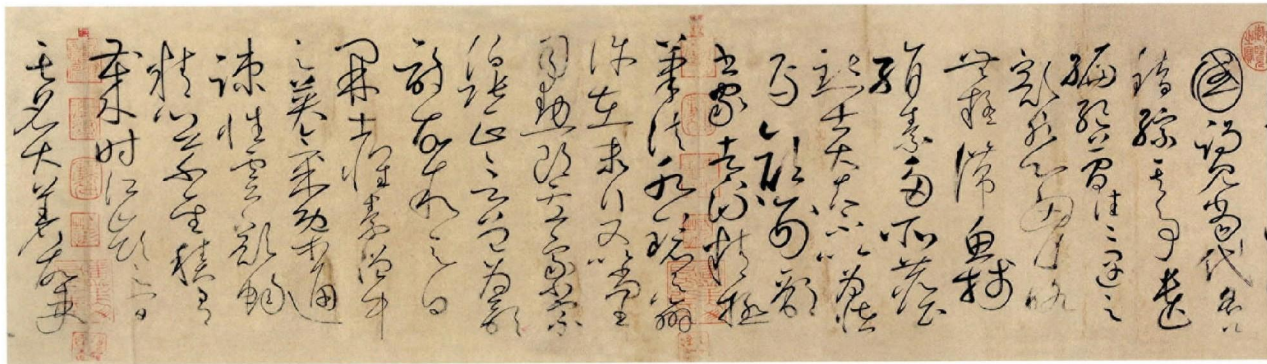 國謁見當代名公
錯綜其事遺
編絕簡往往遇之
豁然心胸略
無疑滯魚牋
絹素多所塵點
士大夫不以為怪
焉顏刑部
書家者流精極
筆法水鏡之辨
許在末行又以尚書
司勳郎盧象小宗
伯張正言曾為歌詩
故敘之曰
開士懷素僧中
之英氣概通
疎性靈豁暢
精心草聖積有
歲時江嶺之間
其名大著故吏